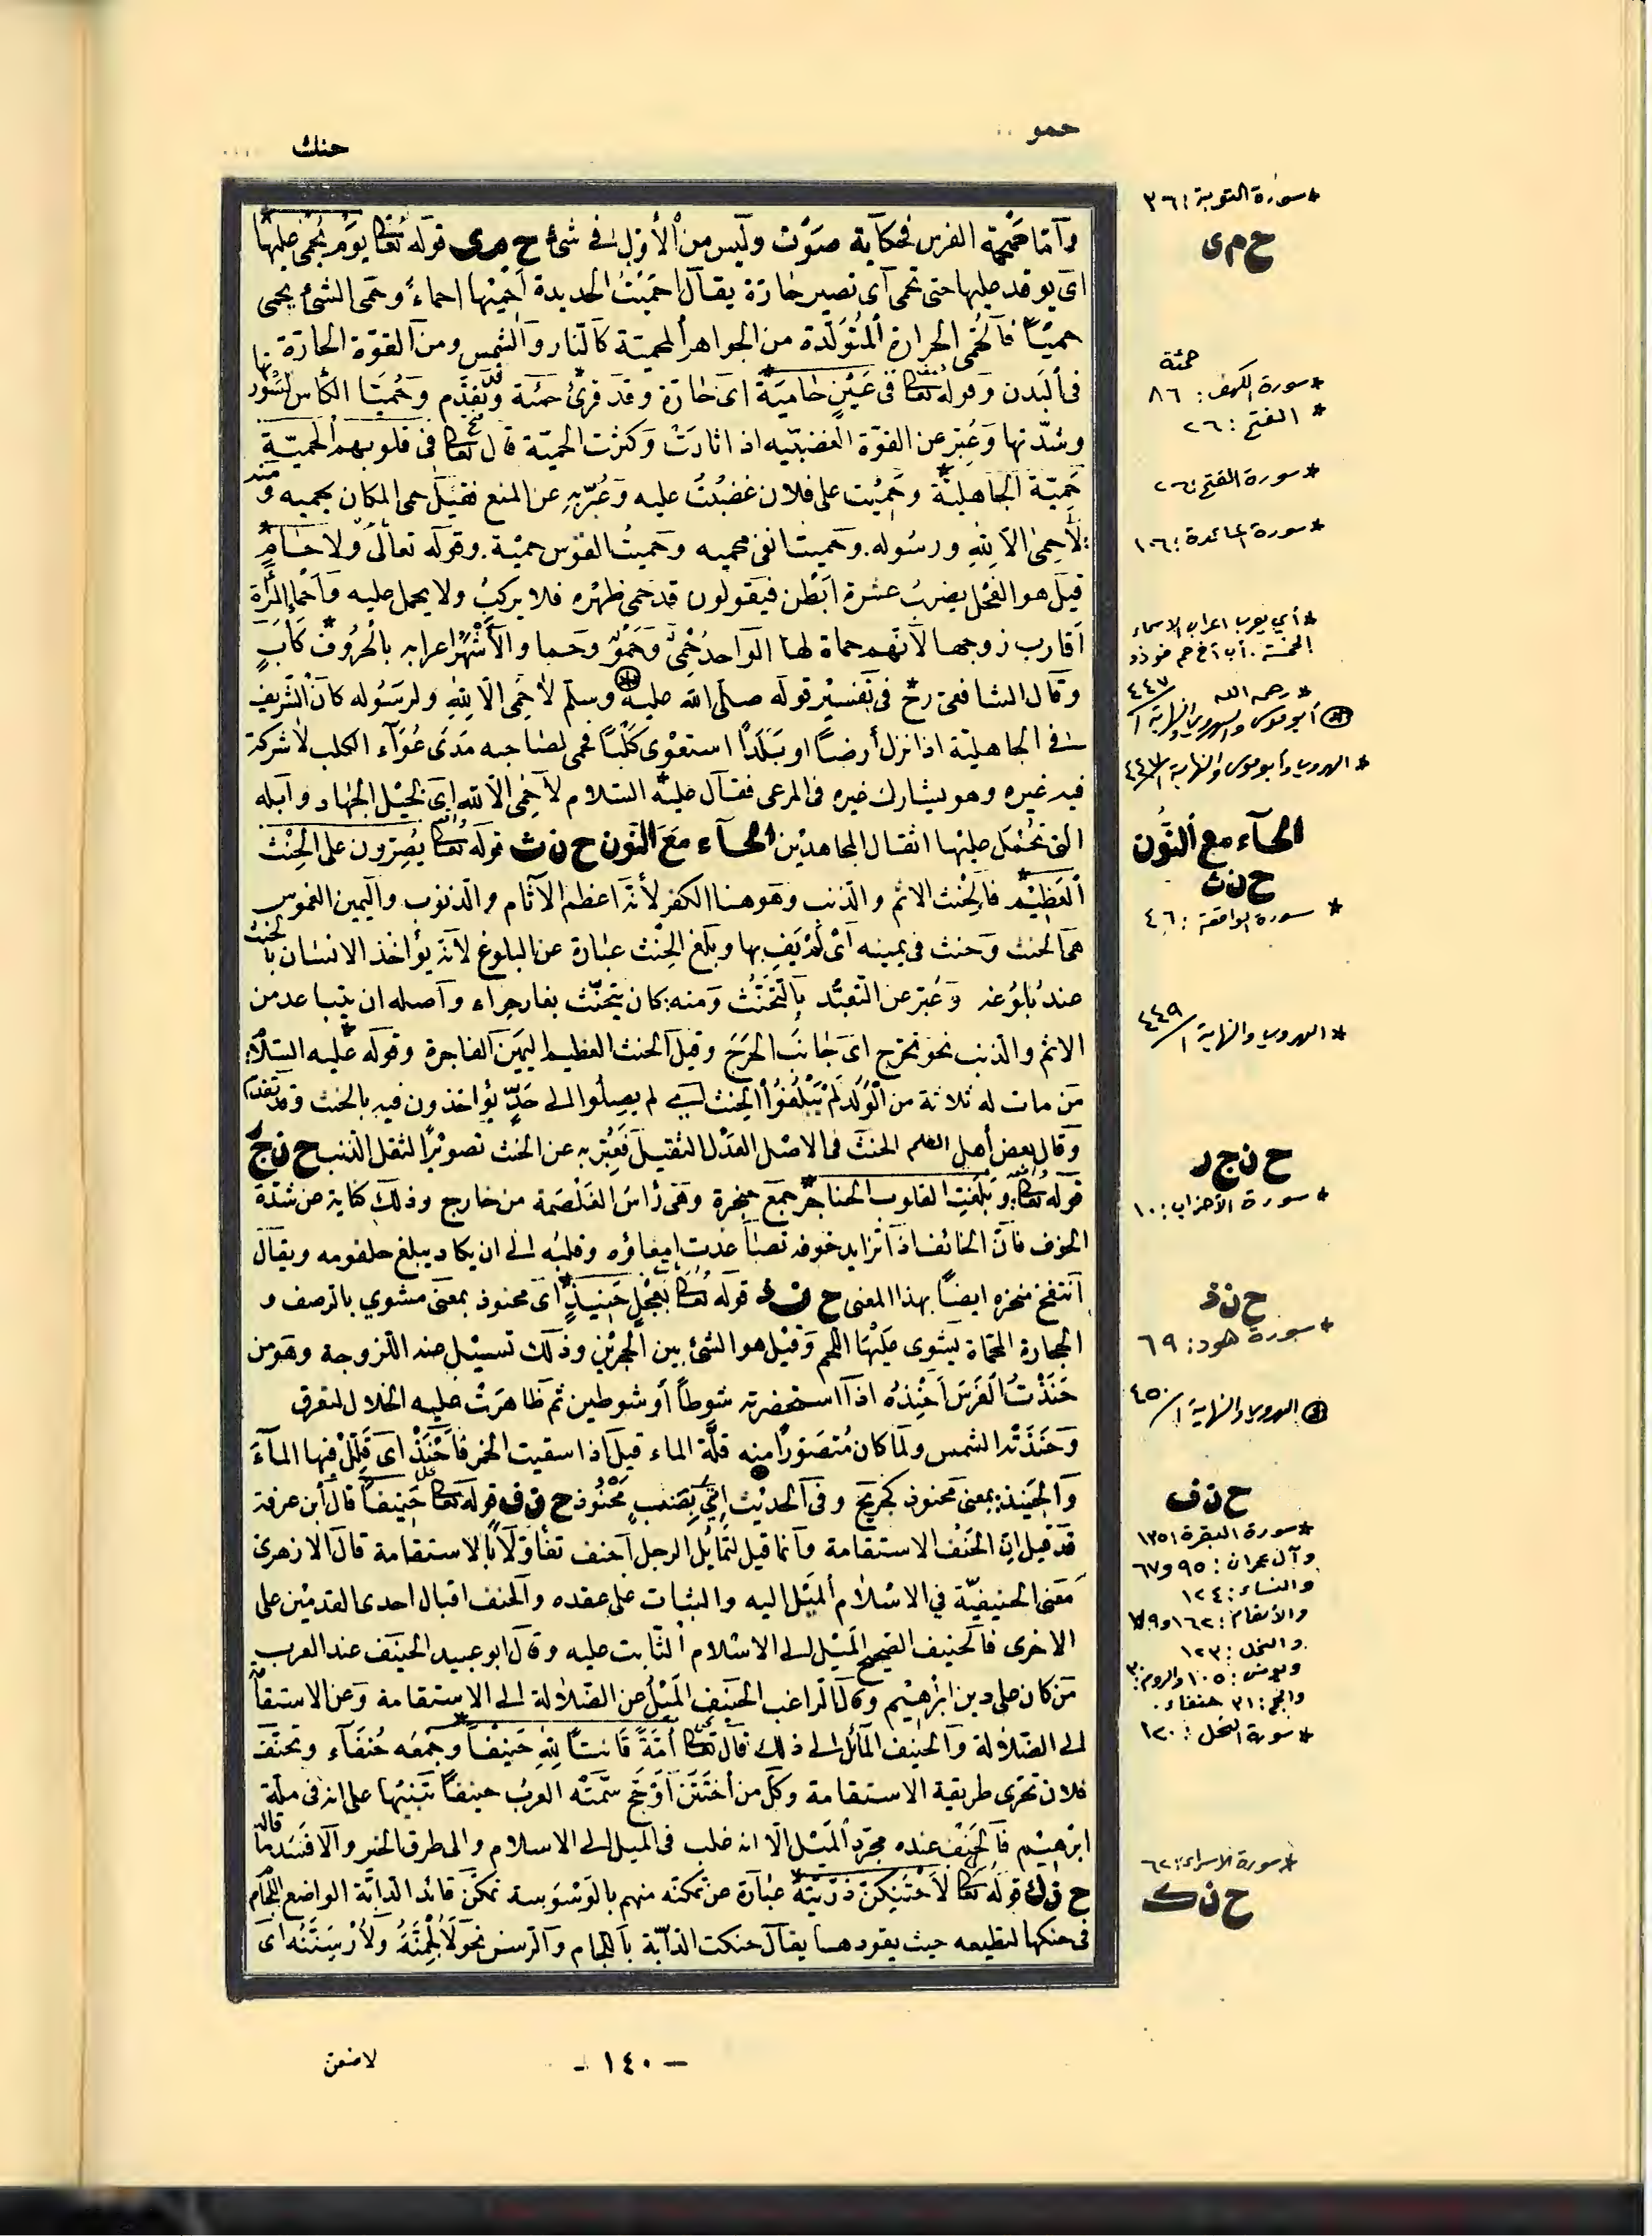 حمو
حنك
وأما حَمْحَمة الفرس فحكاية صَوْت وليس من الأول في شئ ح م ى قوله تعالى يوم يُحْمى عليها
اى يوقد عليها حتى تحمى آى تصير حارّة يقال احمَيْتُ الحديدة اُحْمِيْها احماءً وحَمى الشئ يحمى
حميًا فآلحُمّى الحرارة المُتَولّدة من الجواهر المحمية كآلنّار والشمس ومن القوّة الحارّة
فى ألبَدن وقوله تعالى فى عَيْنٍ حامِيَة اى حارّة وقد قرئ حمئة وقد تقدّم وحُميَّا الكأس سَوْرتها
وشدّتها وَعُبّر عن القوّة الغضبيّه اذا ثارَتْ وكثرت الحميّة قال تعالى فى قلوبهم الحميّة
حَمِيّة الجاهليّة وحَمِيْت على فلان غضبْتُ عليه وَعُبّر به عن المنع فقيل حمى المكان يحميه ومنه
لاَ حِمىٰ الاّ للهِ ورسُوله. وحميت انفى محميه وحميتُ القوس حميْة. وقوله تعالى ولا حَامٍ
قيل هو الفحْل يضربُ عشرة اَبْطُن فيقولون قد حَمى ظهْره فلا يركبُ ولا يحمل عليه وَأحْماء المرأة
اَقارب زوجها لآنّهم حماة لها الواحد حَمْىٌ وحَمْوٌ وحما والأشْهَر اعرابه بالحُروُف كَأبٍ
وقال الشافعى رح فى تَفْسيْر قوله صلّى الله عليه وسلّم لاٰ حِمى الاّ للهِ ولرسُوله كانَ الشّريف
فى الجاهليّة اذا نزل أرضًا او بَلَدًا استعْوى كَلْبًا فحمى لصاحبه مَدَى عُوَآء الكلب لا شركهٗ
فيه غيره وهو يشارك غيره فى المرعى فقال عليْه السّلام لا حِمى الاّ لله اى لخيْل الجهاد وآبله
التى تحُمْل عليْها اثقال المجاهديْن الحآء مَعَ النّون ح ن ث قوله تعالى يُصِرّون على الحِنْث
ألعَظيْم فالحِنْث الاثم والذنب وهو هنا الكفر لأنّه اعظم الآثام والذنوب واليمين الغموس
هى الحنث وَحنث فى يمينه آىْ لَمْ يَفِ بها وبلغ الحِنْث عبارة عن البلوغ لآنه يؤاخذ الانسان بالحنث
عند بُلوُغه وَعُبّر عن التعبّد بالتحنّث ومنه: كان يتحنّث بغار حِراء وآصله ان يتباعد من
الاثم والذنب نحو تحرّج اى جانَبَ الحَرَج وقيل الحنث العظيم اليميْن الفاجرة وقوله عليه السّلام
مَن مات له ثلاثة من الْوَلَد لَمْ يَبْلُغُوا الحِنث اى لم يصِلُوا الى حَدٍّ يؤاخذون فيه بالحنث وقد تقدّم
وَقال بعض أهل العلم الحنث فى الاصْل العَدْل الثقيل فَعُبّر به عن الحنث تصويْرًا لثقل الذنب ح ن ج ر
قوله تعالى وَبلغت القلوب الحناجر جمع حنجرة وهى رَاس الغَلْصَمة من خارج وذلك كناية عن شدّة
الخوف فانّ الخائف اذا تزايد خوفه تصاعَدَت امعاؤه وقلبُه الى ان يكاد يبلغ حلقومه ويقال
اَنتفخ منخره ايضًا بهذا المعنى ح ن ذ قوله تعالى بعجْل حَنِيذٍ اى محنوذ بمعنى مشوي بالرصف و
الحجارة المحماة يشوى عَلَيْها اللحم وَقيْل هو الشئ بين الحجريْن وذلك تسييْل عنه اللزوجة وهو من
حَنَذْتُ الفَرَسَ اَحْنِذُه اذا استحضرته شوطًا أو شوطين ثم ظاهرَتْ عليه الجلال لتعرق
وَحَنَذَتْه الشمس ولما كان مُتصَوَّرًا منه قلّة الماء قيل اذا سقيت الخمر فأحْنِذْ اى قَلِّلْ فيها المآءَ
وَالحِنيذ: بمعنى محنوذ كجريح وفى الحديْث اُتِيَ بِضَبٍّ مَحْنُوذ ح ن ف قوله تعالى حَنِيفًا قال أبن عرفة
قدْ قيل انّ الحَنَف الاستقامة وآنما قيل لتَمايُل الرجل آحنف تفاؤلاً بالاستقامة قال الازهرى
مَعْنى الحنيفيّة في الاسْلام اَلمَيْل اليه والثبات على عقده وآلحنف اقبال احدى القدميْن على
الاخرى فالحنيف الصحيح المَيْل الى الاسْلام الثّابت عليه وقال ابو عبيد الحنيف عند العرب
مَن كان على دين ابْرٰهيْم وقال الراغب الحنَف المَيْل عن الضّلالة الى الاستقامة وَعن الاستقامة
الى الضّلالة وآلحنيف المآئل الى ذلك قال تعالى اُمّةً قَانتًا للهِ حَنيفًا وجَمعُه حُنَفَآء وتحنّف
فلان تحرّى طريقة الاستقامة وكلّ من أختَتَن أوْ حَجّ سمّتْه العرَبُ حنيفًا تَنبيْها على انه فى ملّة
ابرٰهيْم فآلحَنَف عنده مجرّد المَيْل الّا انه غلب فى الميل الى الاسلام والى طرق الخير وآلا فَسَد ما قاله
ح ن ك قوله تعالى لأحْتَنِكَنّ ذرّيّتَهُ عبارة عن تمكّنه منهم بالوَسْوَسة تمكّن قائد الدابّة الواضع اللجام
فى حنكها لتطيعه حيث يقودها يقال حنكت الدابّة باللجام والرسن نحو لَاُلْجِمَنّهُ ولأرْسِنَنّه اى
* سورة التوبة: ٣٦
ح م ى
حمئة
* سورة الكهف: ٨٦
* الفتح: ٢٦
* سورة الفتح: ٢٦
* سورة المائدة: ١٠٦
* أي يعرب اعراب الاسماء
الخمسة. أب أخ حم فو ذو
* رحمه الله
أبو موسى والهروي والنهاية ١/٤٤٧
* الهروي وأبو موسى والنهاية ١/٤٤٧
الحآء مع ألنّون
ح ن ث
* سورة الواقعة: ٤٦
* الهروي والنهاية ١/٤٤٩
ح ن ج ر
* سورة الأحزاب: ١٠
ح ن ذ
* سورة هود: ٦٩
الهروي والنهاية ١/٤٥٠
ح ن ف
* سورة البقرة ١٣٥
وآل عمران: ٩٥ و٦٧
والنساء: ١٢٤
والأنعام: ١٦٢ و٧٩
والنحل: ١٢٣
ويونس: ١٠٥ والروم: ٣٠
والحج: ٣١ حنفاء.
* سورة النحل: ١٢٠
* سورة الاسراء: ٦٢
ح ن ك
- ١٤٠ -
لاضعن